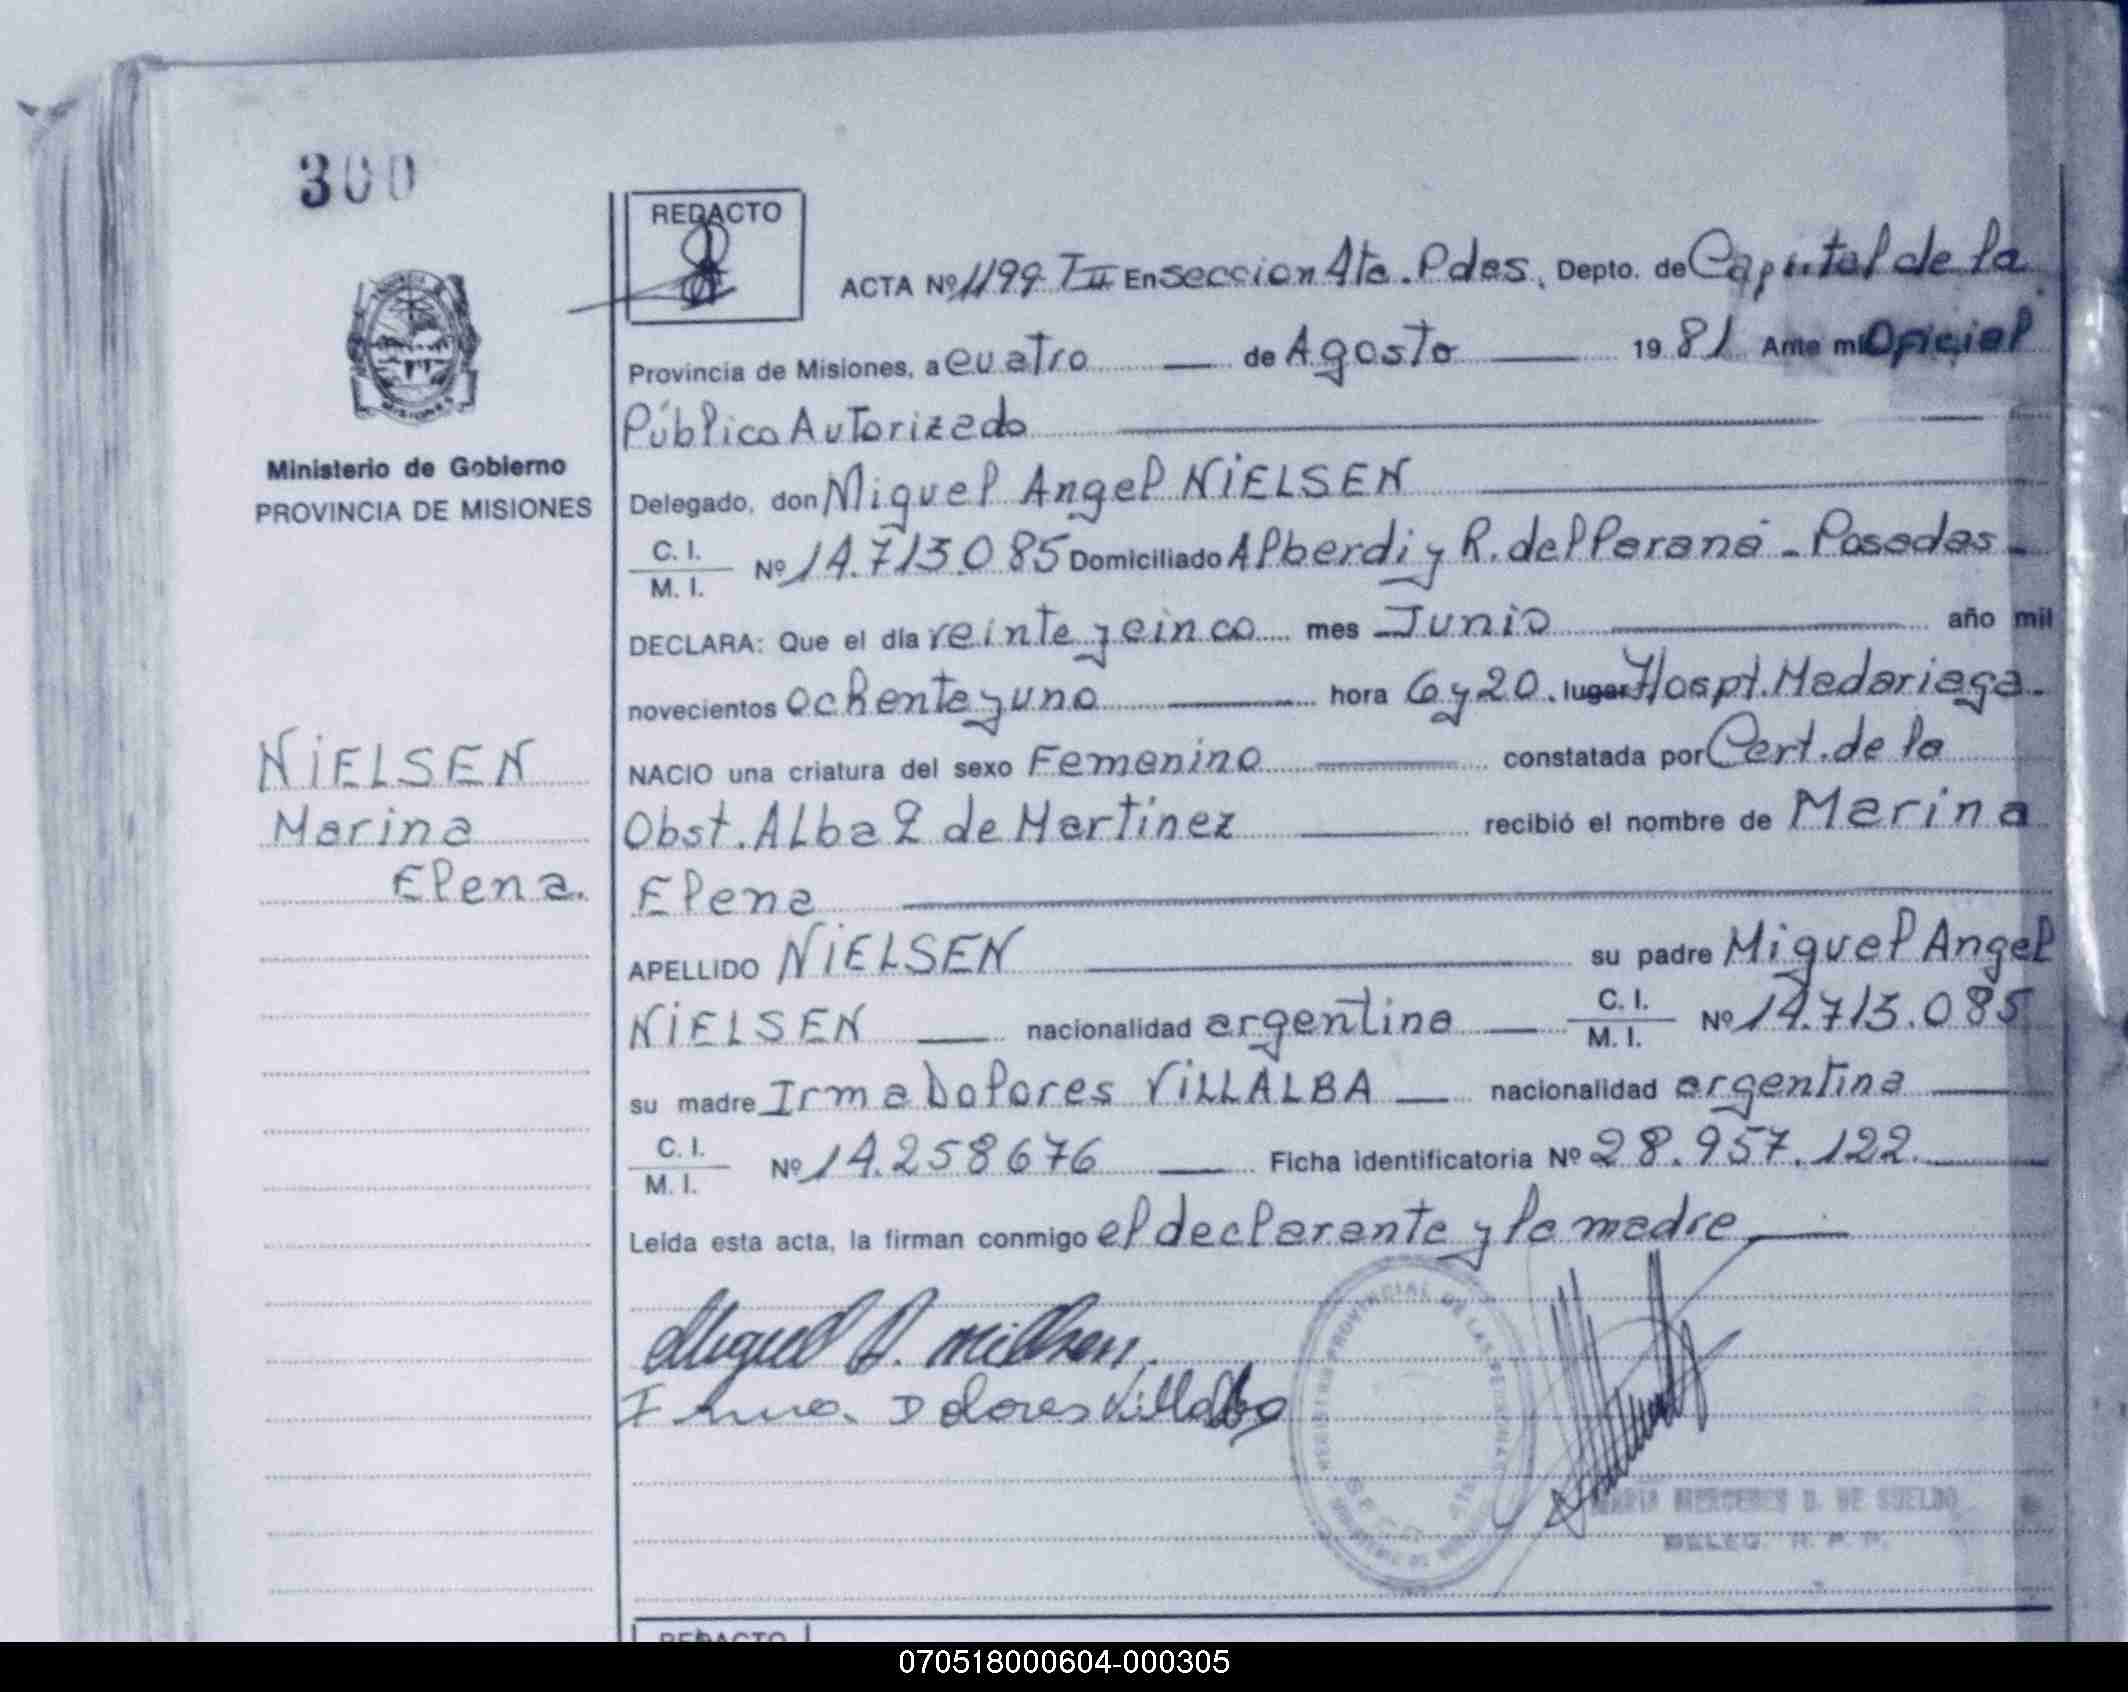 300
REDACTO
ACTA Nº 1199 TII En seccion 4ta. Pdas, Depto. de Capital de la
Provincia de Misiones, a cuatro de Agosto 1981 Ante mi Oficial
Público Autorizado
Ministerio de Gobierno
PROVINCIA DE MISIONES
Delegado, don Miguel Angel NIELSEN
C. I.
M. I. Nº 14.713.085 Domiciliado Alberdi y R. del Paraná - Posadas
DECLARA: Que el día veinte y cinco mes Junio año mil
novecientos ochenta y uno hora 6 y 20. lugar Hospt. Madariaga.
NACIO una criatura del sexo Femenino constatada por Cert. de la
Obst. Alba de Martinez recibió el nombre de Marina
Elena
NIELSEN
Marina
Elena.
APELLIDO NIELSEN su padre Miguel Angel
NIELSEN nacionalidad argentina C. I.
M. I. Nº 14.713.085
su madre Irma Dolores VILLALBA nacionalidad argentina
C. I.
M. I. Nº 14.258676 Ficha identificatoria Nº 28.957.122.
Leída esta acta, la firman conmigo el declarante y la madre
Miguel A. Nielsen
Irma Dolores Villalba
REGISTRO PROVINCIAL DE LAS PERSONAS
MARIA MERCEDES D. DE SUELDO
DELEG. R. P. P.
REDACTO
070518000604-000305